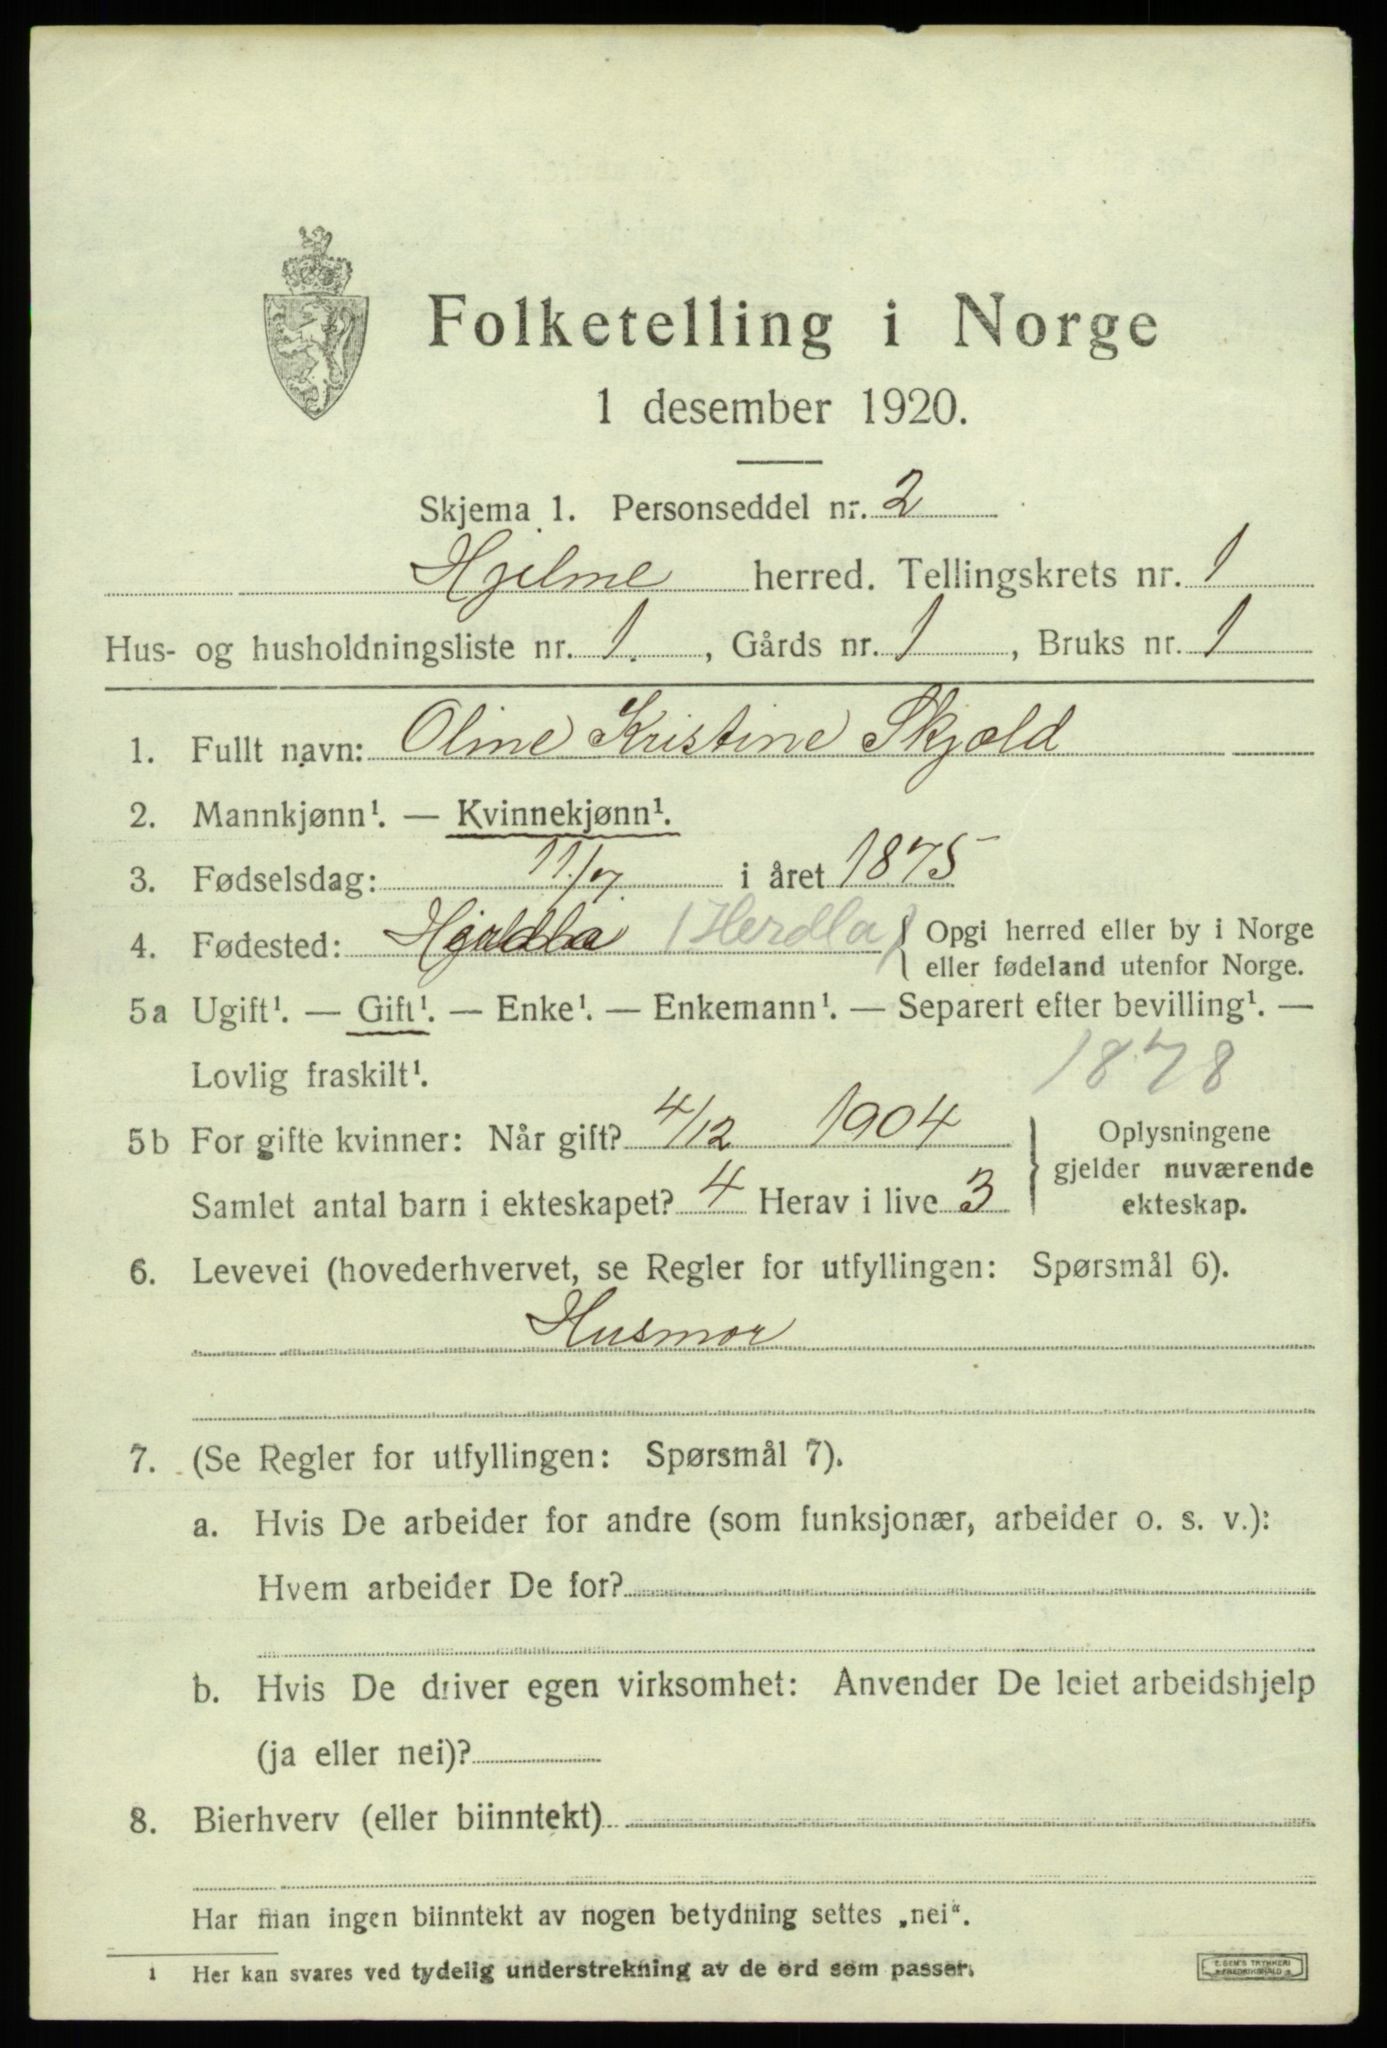 Folketelling i Norge
1 desember 1920.
Skjema 1. Personseddel nr. 2
Hjelme herred. Tellingskrets nr. 1
Hus- og husholdningsliste nr. 1. , Gårds nr. 1 , Bruks nr. 1
1. Fullt navn: Oline Kristine Skjold
2. Mannkjønn¹. — Kvinnekjønn¹.
3. Fødselsdag: 11/7 i året 1875
4. Fødested: (Herdla) { Opgi herred eller by i Norge
eller fødeland utenfor Norge.
5a Ugift¹. — Gift¹. — Enke¹. — Enkemann¹. — Separert efter bevilling¹. —
Lovlig fraskilt¹.
1878
5b For gifte kvinner: Når gift? 4/12 1904
Samlet antal barn i ekteskapet? 4 Herav i live 3
} Oplysningene
gjelder nuværende
ekteskap.
6. Levevei (hovederhvervet, se Regler for utfyllingen: Spørsmål 6).
Husmor
7. (Se Regler for utfyllingen: Spørsmål 7).
a. Hvis De arbeider for andre (som funksjonær, arbeider o. s. v.):
Hvem arbeider De for?
b. Hvis De driver egen virksomhet: Anvender De leiet arbeidshjelp
(ja eller nei)?
8. Bierhverv (eller biinntekt)
Har man ingen biinntekt av nogen betydning settes „nei“.
¹ Her kan svares ved tydelig understrekning av de ord som passer.
E. SEM'S TRYKKERI
FREDRIKSHALD